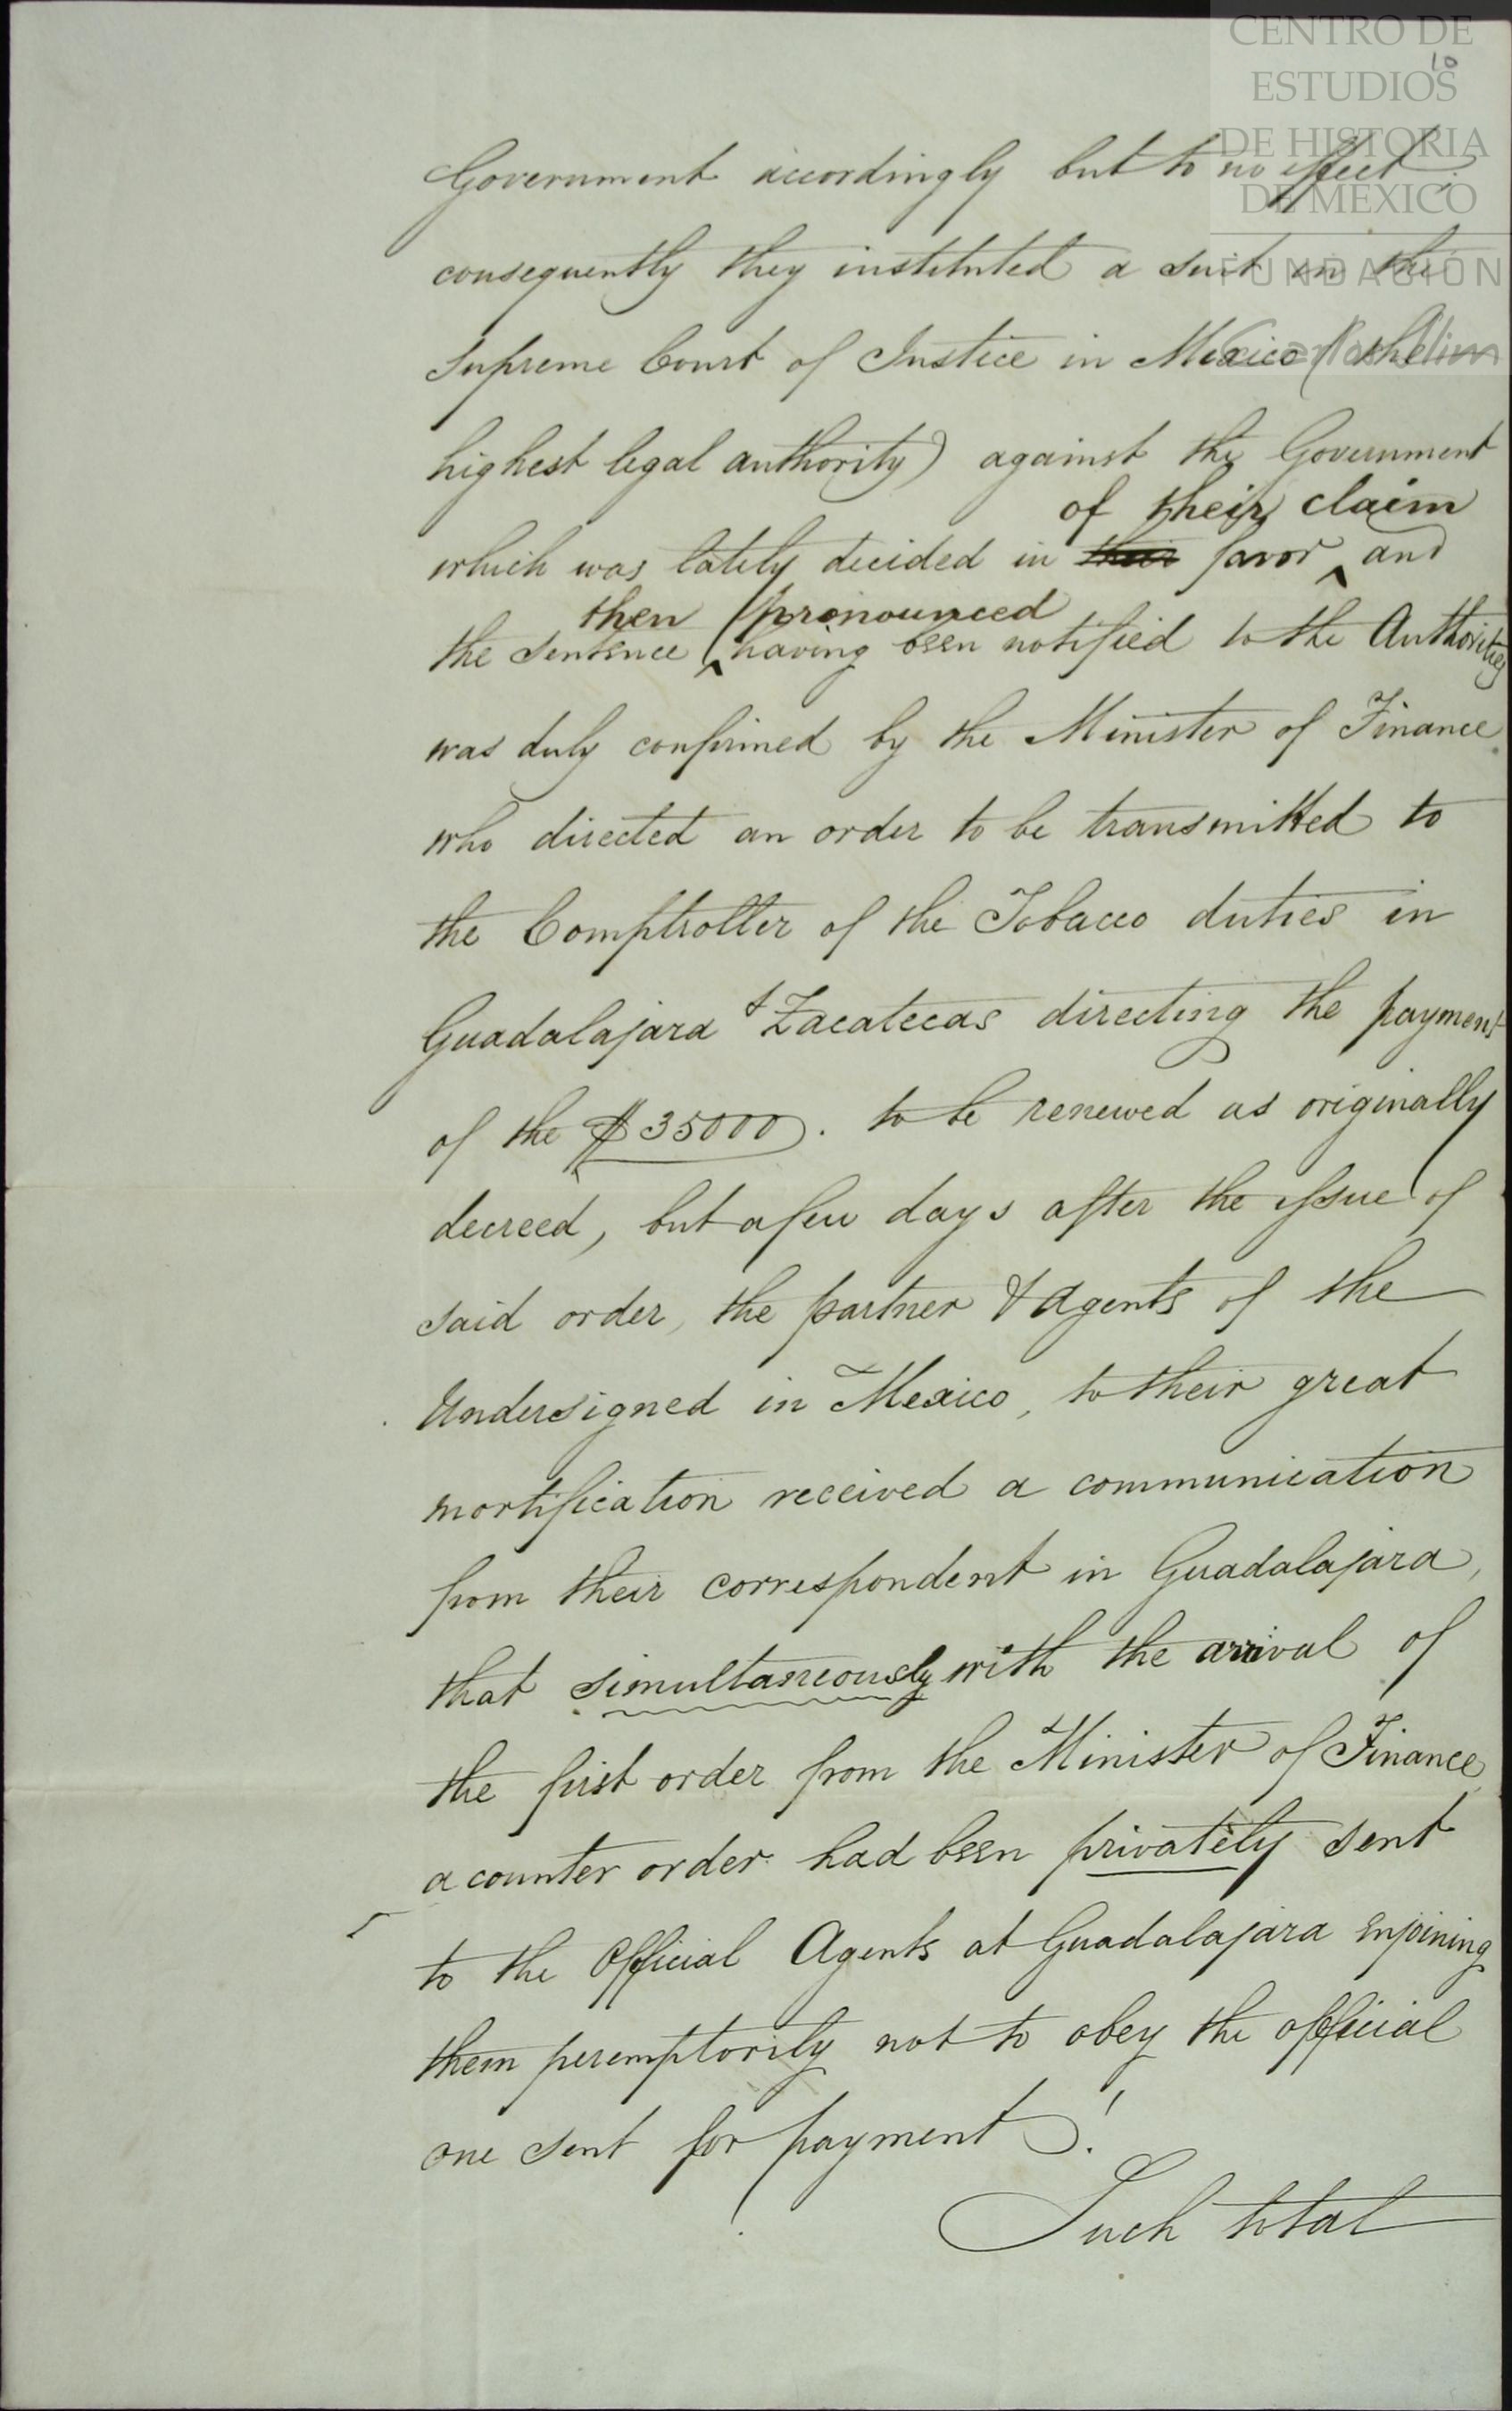 CENTRO DE
ESTUDIOS
DE HISTORIA
DE MÉXICO
FUNDACIÓN
10
Government accordingly but to no effect;
consequently they instituted a suit in the
Supreme Court of Justice in Mexico (the
highest legal authority) against the Government
of their claim
which was lately decided in their favor ‸ and
then pronounced
the sentence ‸ having been notified to the Authorities
was duly confirmed by the Minister of Finance
who directed an order to be transmitted to
the Comptroller of the Tobacco duties in
Guadalajara & Zacatecas directing the payment
of the $35000. to be renewed as originally
decreed, but a few days after the issue of
said order, the partner & Agents of the
Undersigned in Mexico, to their great
mortification received a communication
from their correspondent in Guadalajara,
that simultaneously with the arrival of
the first order from the Minister of Finance,
a counter order had been privately sent
to the Official Agents at Guadalajara enjoining
them peremptorily not to obey the official
one sent for payment!
Such total